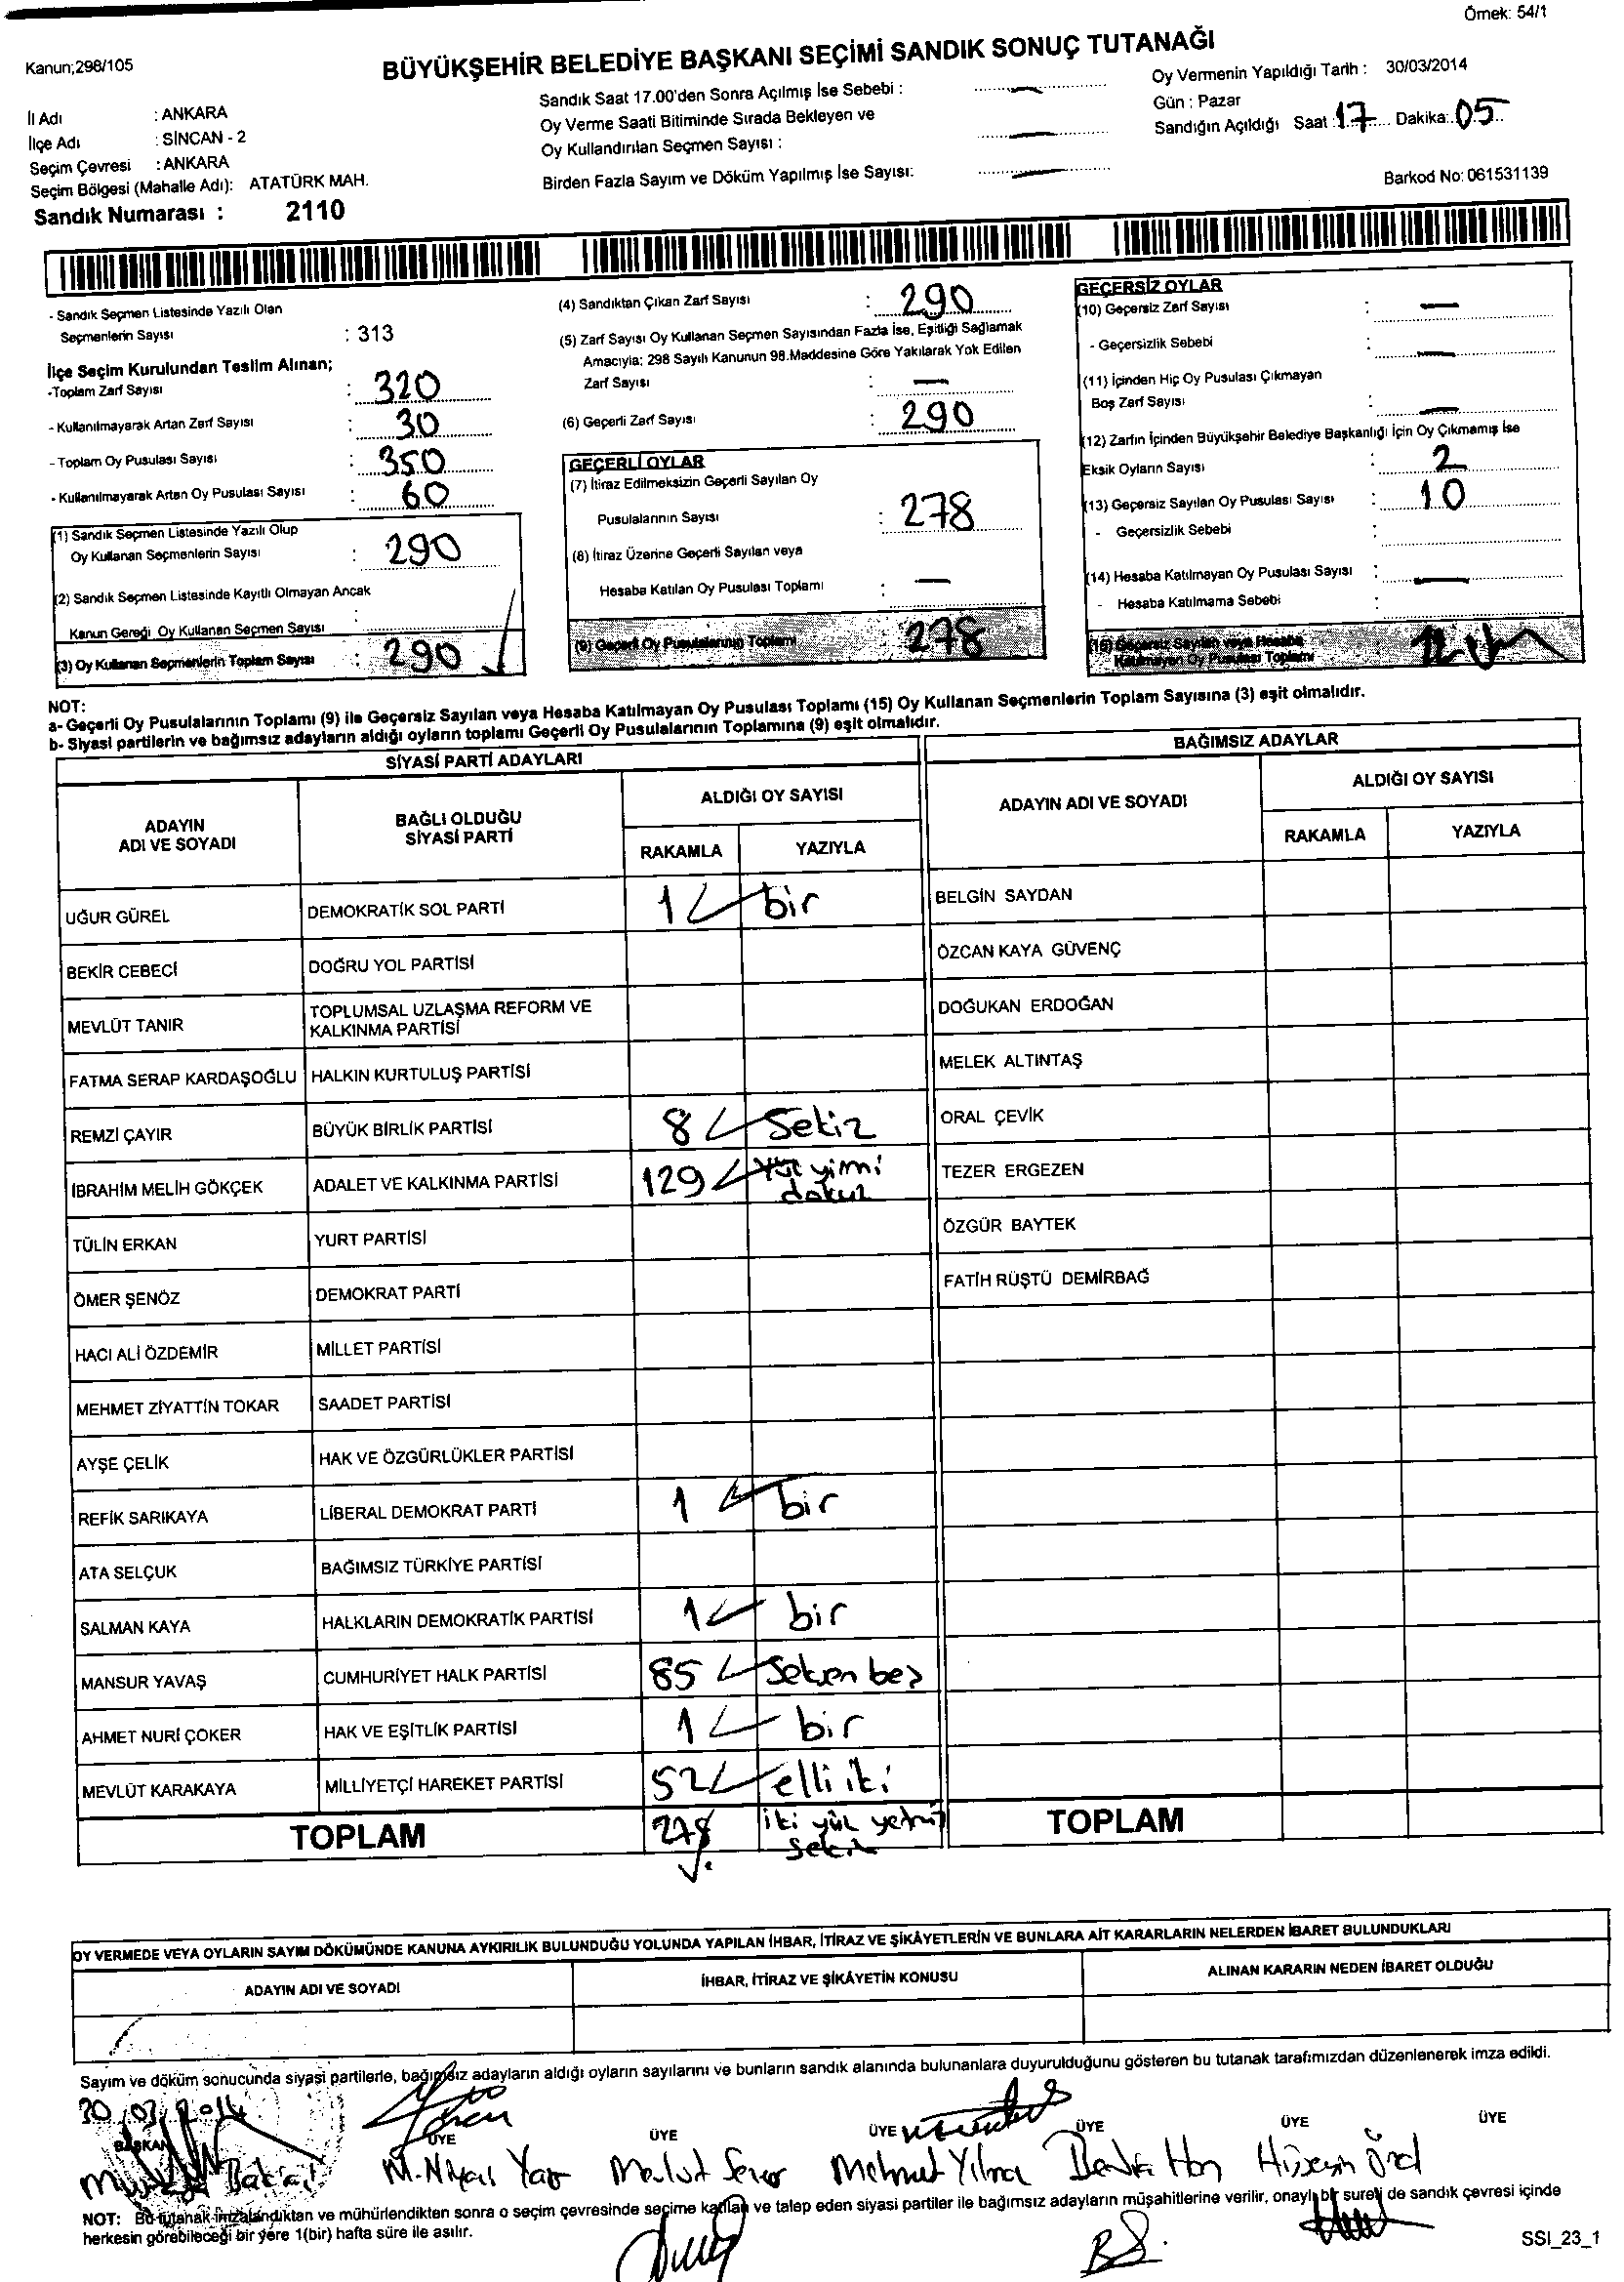 Örnek: 54/1
Kanun;298/105
BÜYÜKŞEHİR BELEDİYE BAŞKANI SEÇİMİ SANDIK SONUÇ TUTANAĞI
İl Adı : ANKARA
İlçe Adı : SİNCAN - 2
Seçim Çevresi : ANKARA
Seçim Bölgesi (Mahalle Adı): ATATÜRK MAH.
Sandık Numarası : 2110
Sandık Saat 17.00'den Sonra Açılmış İse Sebebi : —
Oy Verme Saati Bitiminde Sırada Bekleyen ve
Oy Kullandırılan Seçmen Sayısı : —
Birden Fazla Sayım ve Döküm Yapılmış İse Sayısı: —
Oy Vermenin Yapıldığı Tarih : 30/03/2014
Gün : Pazar
Sandığın Açıldığı Saat : 17 Dakika: 05
Barkod No: 061531139
- Sandık Seçmen Listesinde Yazılı Olan
Seçmenlerin Sayısı : 313
İlçe Seçim Kurulundan Teslim Alınan;
-Toplam Zarf Sayısı : 320
- Kullanılmayarak Artan Zarf Sayısı : 30
- Toplam Oy Pusulası Sayısı : 350
- Kullanılmayarak Artan Oy Pusulası Sayısı : 60
(1) Sandık Seçmen Listesinde Yazılı Olup
Oy Kullanan Seçmenlerin Sayısı : 290
(2) Sandık Seçmen Listesinde Kayıtlı Olmayan Ancak
Kanun Gereği Oy Kullanan Seçmen Sayısı :
(3) Oy Kullanan Seçmenlerin Toplam Sayısı : 290
(4) Sandıktan Çıkan Zarf Sayısı : 290
(5) Zarf Sayısı Oy Kullanan Seçmen Sayısından Fazla İse, Eşitliği Sağlamak
Amacıyla; 298 Sayılı Kanunun 98.Maddesine Göre Yakılarak Yok Edilen
Zarf Sayısı : —
(6) Geçerli Zarf Sayısı : 290
GEÇERLİ OYLAR
(7) İtiraz Edilmeksizin Geçerli Sayılan Oy
Pusulalarının Sayısı : 278
(8) İtiraz Üzerine Geçerli Sayılan veya
Hesaba Katılan Oy Pusulası Toplamı : —
(9) Geçerli Oy Pusulalarının Toplamı 278
GEÇERSİZ OYLAR
(10) Geçersiz Zarf Sayısı : —
- Geçersizlik Sebebi : —
(11) İçinden Hiç Oy Pusulası Çıkmayan
Boş Zarf Sayısı : —
(12) Zarfın İçinden Büyükşehir Belediye Başkanlığı İçin Oy Çıkmamış İse
Eksik Oyların Sayısı : 2
(13) Geçersiz Sayılan Oy Pusulası Sayısı : 10
- Geçersizlik Sebebi :
(14) Hesaba Katılmayan Oy Pusulası Sayısı : —
- Hesaba Katılmama Sebebi :
(15) Geçersiz Sayılan veya Hesaba
Katılmayan Oy Pusulası Toplamı 12
NOT:
a- Geçerli Oy Pusulalarının Toplamı (9) ile Geçersiz Sayılan veya Hesaba Katılmayan Oy Pusulası Toplamı (15) Oy Kullanan Seçmenlerin Toplam Sayısına (3) eşit olmalıdır.
b- Siyasi partilerin ve bağımsız adayların aldığı oyların toplamı Geçerli Oy Pusulalarının Toplamına (9) eşit olmalıdır.
SİYASİ PARTİ ADAYLARI
ADAYIN ADI VE SOYADI BAĞLI OLDUĞU SİYASİ PARTİ ALDIĞI OY SAYISI
RAKAMLA YAZIYLA
UĞUR GÜREL DEMOKRATİK SOL PARTİ 1 bir
BEKİR CEBECİ DOĞRU YOL PARTİSİ
MEVLÜT TANIR TOPLUMSAL UZLAŞMA REFORM VE KALKINMA PARTİSİ
FATMA SERAP KARDAŞOĞLU HALKIN KURTULUŞ PARTİSİ
REMZİ ÇAYIR BÜYÜK BİRLİK PARTİSİ 8 Sekiz
İBRAHİM MELİH GÖKÇEK ADALET VE KALKINMA PARTİSİ 129 yüz yirmi dokuz
TÜLİN ERKAN YURT PARTİSİ
ÖMER ŞENÖZ DEMOKRAT PARTİ
HACI ALİ ÖZDEMİR MİLLET PARTİSİ
MEHMET ZİYATTİN TOKAR SAADET PARTİSİ
AYŞE ÇELİK HAK VE ÖZGÜRLÜKLER PARTİSİ
REFİK SARIKAYA LİBERAL DEMOKRAT PARTİ 1 bir
ATA SELÇUK BAĞIMSIZ TÜRKİYE PARTİSİ
SALMAN KAYA HALKLARIN DEMOKRATİK PARTİSİ 1 bir
MANSUR YAVAŞ CUMHURİYET HALK PARTİSİ 85 Seksen beş
AHMET NURİ ÇOKER HAK VE EŞİTLİK PARTİSİ 1 bir
MEVLÜT KARAKAYA MİLLİYETÇİ HAREKET PARTİSİ 52 elli iki
TOPLAM 278 iki yüz yetmiş sekiz
BAĞIMSIZ ADAYLAR
ADAYIN ADI VE SOYADI ALDIĞI OY SAYISI
RAKAMLA YAZIYLA
BELGİN SAYDAN
ÖZCAN KAYA GÜVENÇ
DOĞUKAN ERDOĞAN
MELEK ALTINTAŞ
ORAL ÇEVİK
TEZER ERGEZEN
ÖZGÜR BAYTEK
FATİH RÜŞTÜ DEMİRBAĞ
TOPLAM
OY VERMEDE VEYA OYLARIN SAYIM DÖKÜMÜNDE KANUNA AYKIRILIK BULUNDUĞU YOLUNDA YAPILAN İHBAR, İTİRAZ VE ŞİKÂYETLERİN VE BUNLARA AİT KARARLARIN NELERDEN İBARET BULUNDUKLARI
ADAYIN ADI VE SOYADI İHBAR, İTİRAZ VE ŞİKÂYETİN KONUSU ALINAN KARARIN NEDEN İBARET OLDUĞU
Sayım ve döküm sonucunda siyasi partilerle, bağımsız adayların aldığı oyların sayılarını ve bunların sandık alanında bulunanlara duyurulduğunu gösteren bu tutanak tarafımızdan düzenlenerek imza edildi.
30/03/2014
BAŞKAN ÜYE ÜYE ÜYE ÜYE ÜYE ÜYE
Mehmet Yılmaz Hüseyin
NOT: Bu tutanak imzalandıktan ve mühürlendikten sonra o seçim çevresinde seçime katılan ve talep eden siyasi partiler ile bağımsız adayların müşahitlerine verilir, onaylı bir sureti de sandık çevresi içinde
herkesin görebileceği bir yere 1(bir) hafta süre ile asılır.
SSI_23_1